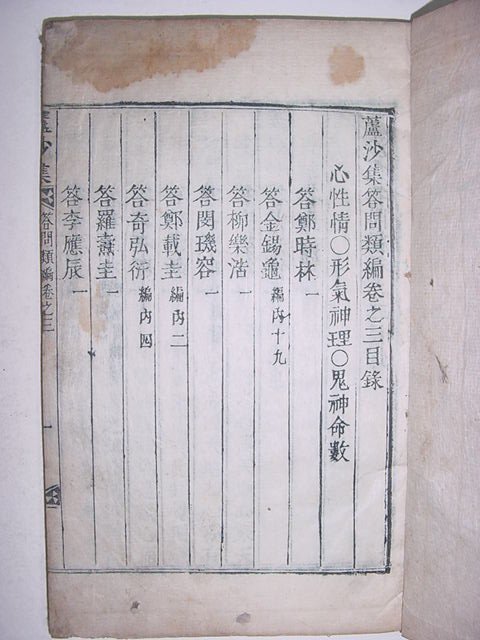 蘆沙集答問類編卷之三目錄
心性情〇形氣神理〇鬼神命數
答鄭時林一
答金錫龜編內十九
答柳樂浩一
答閔璣容一
答鄭載圭編內二
答奇弘衍編內四
答羅燾圭一
答李應辰一
蘆沙集 答問類編卷之三 一